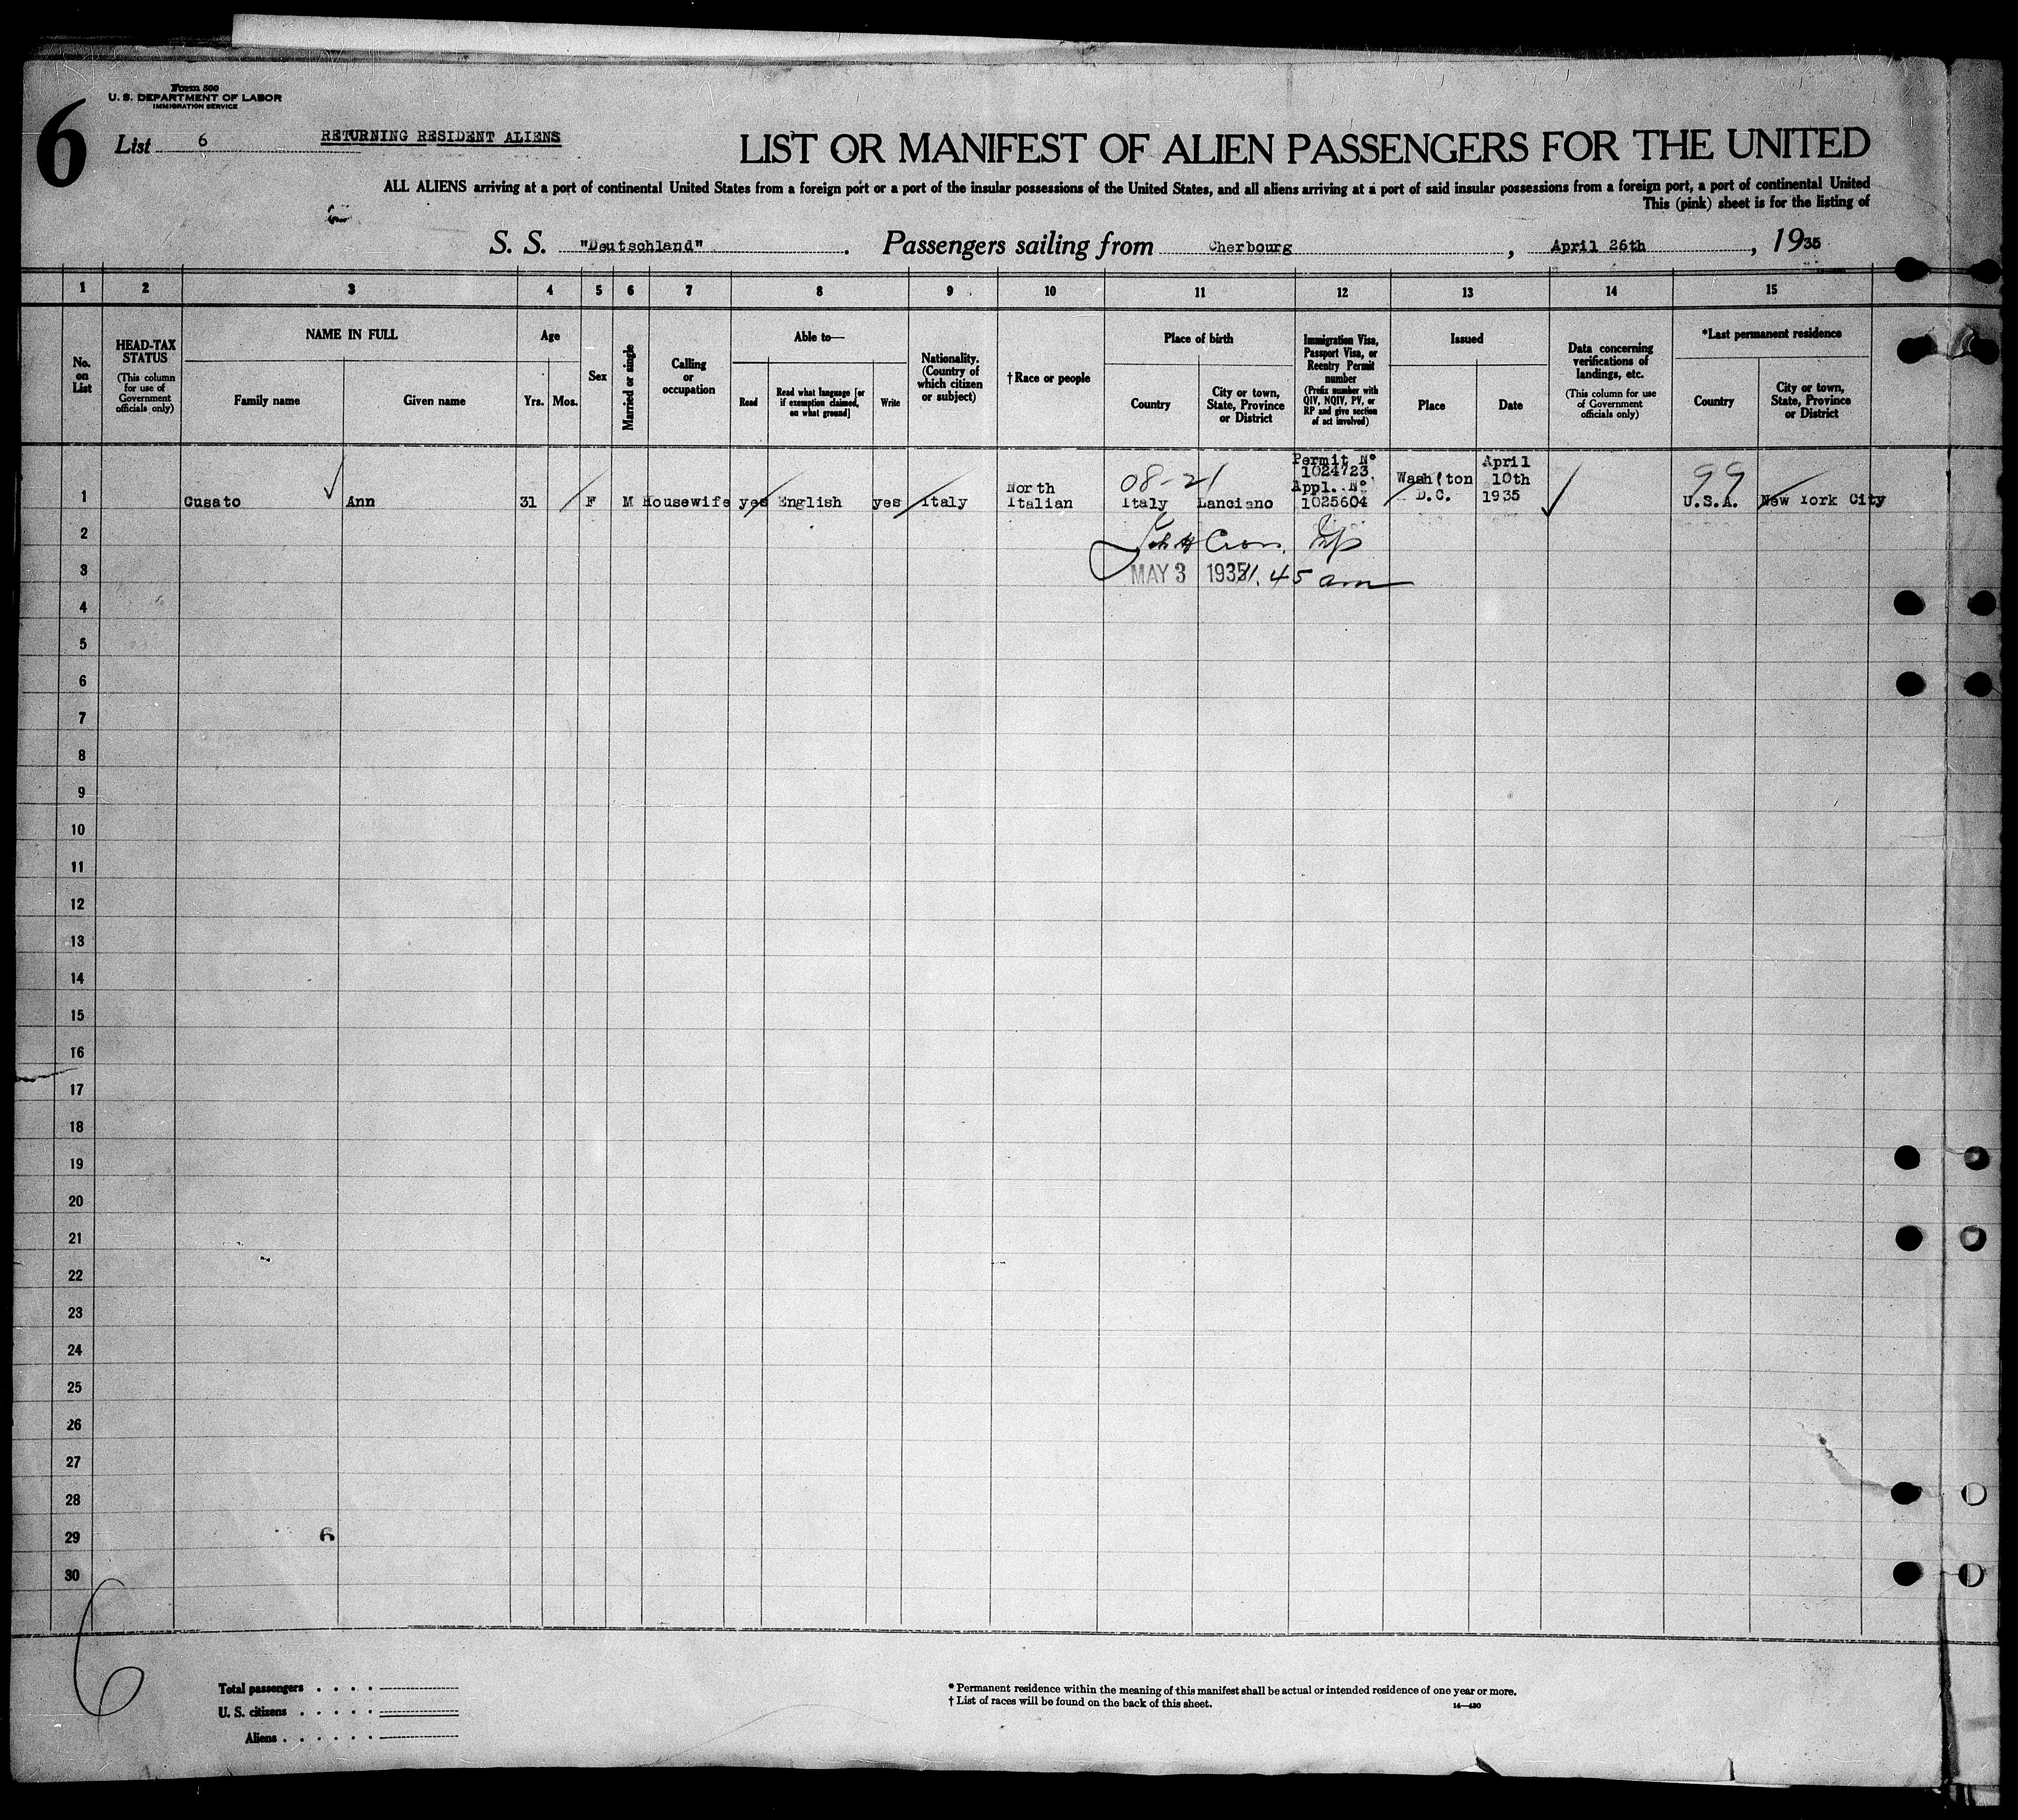 Form 500
U. S. DEPARTMENT OF LABOR
IMMIGRATION SERVICE
6
List 6
RETURNING RESIDENT ALIENS
LIST OR MANIFEST OF ALIEN PASSENGERS FOR THE UNITED
ALL ALIENS arriving at a port of continental United States from a foreign port or a port of the insular possessions of the United States, and all aliens arriving at a port of said insular possessions from a foreign port, a port of continental United
This (pink) sheet is for the listing of
S. S. "Deutschland". Passengers sailing from Cherbourg, April 26th, 1935
1 2 3 4 5 6 7 8 9 10 11 12 13 14 15
No. on List
HEAD-TAX STATUS
(This column for use of Government officials only)
NAME IN FULL
Family name
Given name
Age
Yrs. Mos.
Sex
Married or single
Calling or occupation
Able to—
Read
Read what language [or if exemption claimed, on what ground]
Write
Nationality. (Country of which citizen or subject)
†Race or people
Place of birth
Country
City or town, State, Province or District
Immigration Visa, Passport Visa, or Reentry Permit number
(Prefix number with QIV, NQIV, PV, or RP and give section of act involved)
Issued
Place
Date
Data concerning verifications of landings, etc.
(This column for use of Government officials only)
*Last permanent residence
Country
City or town, State, Province or District
1 Cusato Ann 31 F M Housewife yes English yes Italy North Italian 08-21 Italy Lanciano Permit No 1024723 Appl. No 1025604 Wash'ton D.C. April 10th 1935 99 U.S.A. New York City
2
3 MAY 3 1935 11.45 am
4
5
6
7
8
9
10
11
12
13
14
15
16
17
18
19
20
21
22
23
24
25
26
27
28
29 6
30
6
Total passengers
U. S. citizens
Aliens
* Permanent residence within the meaning of this manifest shall be actual or intended residence of one year or more.
† List of races will be found on the back of this sheet.
14—430